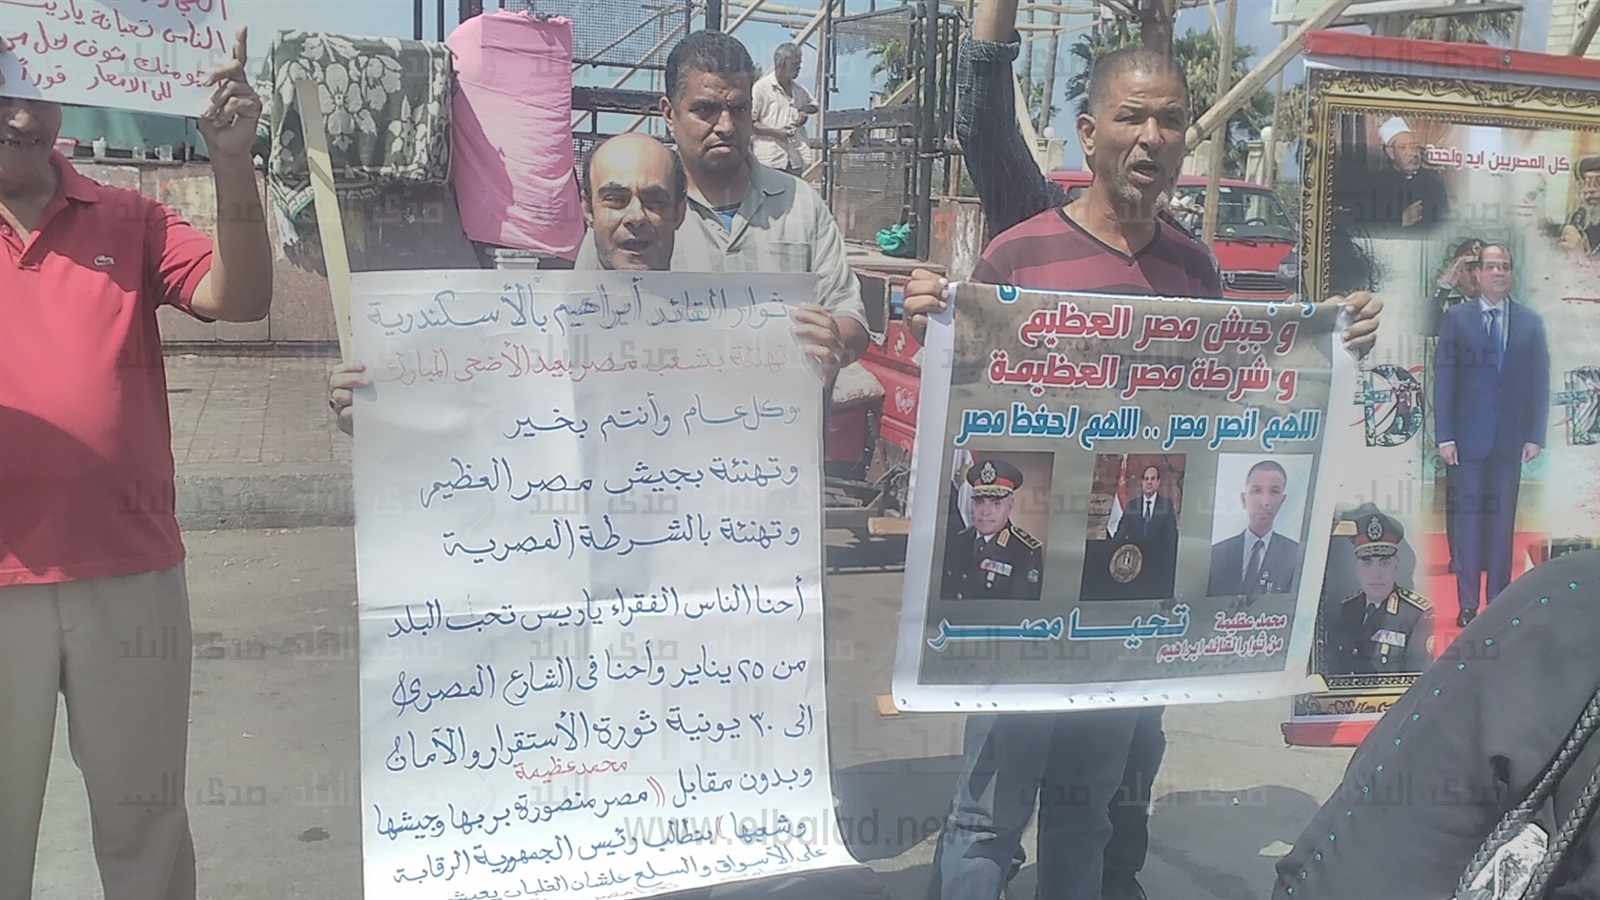 الناس تعبانة ياريس
للى الاسعار فوراً
ثوار القائد أبراهيم بالأسكندرية
تهنئة بشعب مصر بعيد الأضحى المبارك
وكل عام وأنتم بخير
وتهنئة بجيش مصر العظيم
وتهنئة بالشرطة المصرية
أحنا الناس الفقراء ياريس تحب البلد
من ٢٥ يناير وأحنا فى الشارع المصرى
الى ٣٠ يونية ثورة الأستقرار والآمان
محمد عظيمة
وبدون مقابل (( مصر منصورة بربها وجيشها
وشعبها )) بنطالب رئيس الجمهورية الرقابة
على الآسواق والسلع علشان الغلبان يعيش
وجيش مصر العظيم
وشرطة مصر العظيمة
اللهم انصر مصر .. اللهم احفظ مصر
تحيا مصر
محمد عظيمة
من ثوار القائد ابراهيم
كل المصريين ايد واحدة
صدى البلد
www.elbalad.news